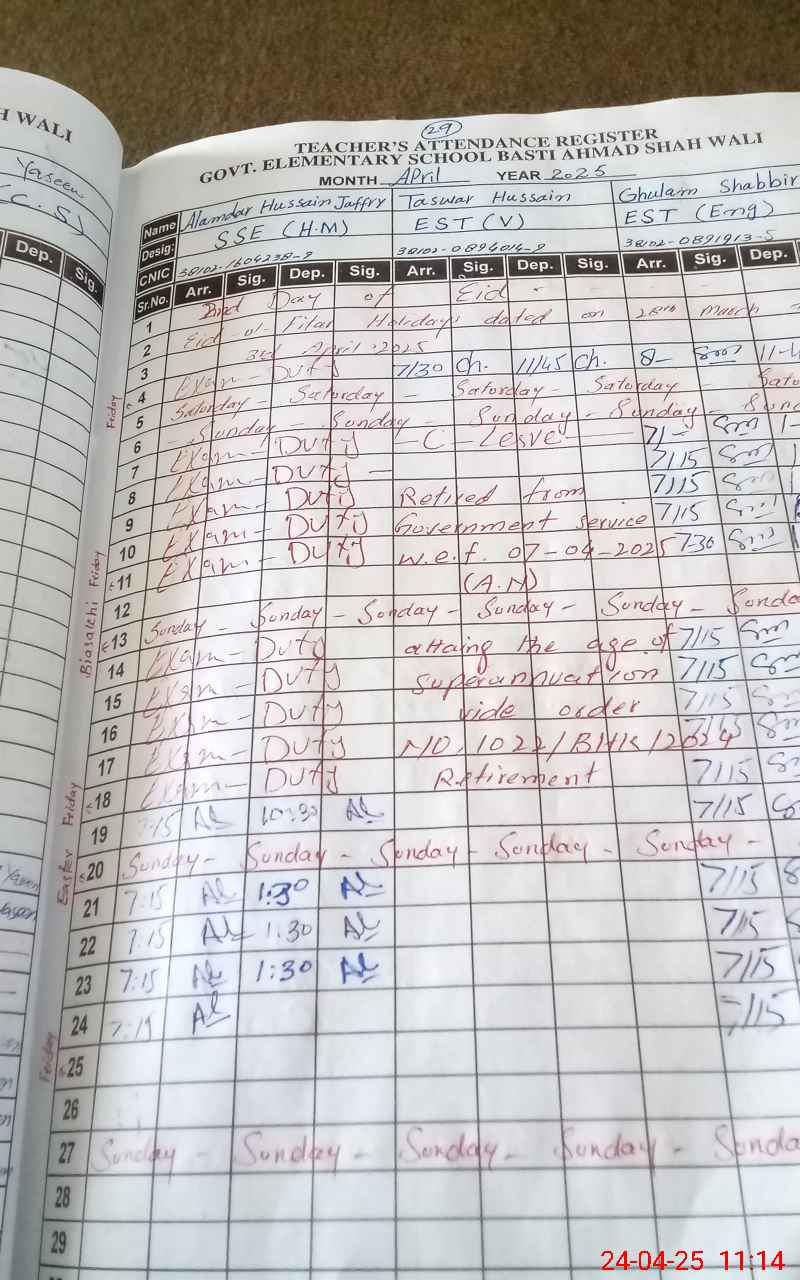 H WALI
Yaseen
(C.S)
Dep. Sig.
29
TEACHER'S ATTENDANCE REGISTER
GOVT. ELEMENTARY SCHOOL BASTI AHMAD SHAH WALI
MONTH April YEAR 2025
Name Alamdar Hussain Jaffry Taswar Hussain Ghulam Shabbir
Desig: SSE (H.M) EST (V) EST (Eng)
CNIC 38102-1604238-9 38102-0894014-9 38102-0891913-5
Sr.No. Arr. Sig. Dep. Sig. Arr. Sig. Dep. Sig. Arr. Sig. Dep.
1 2nd Day of Eid
2 Eid-ul-Fitar Holidays dated on 28th March
3 3rd April 2025
Friday 4 Exam-Duty 7/30 Ch. 11/45 Ch. 8-
5 Saturday - Saturday - Saturday - Saturday -
6 Sunday - Sunday - Sunday - Sunday -
7 Exam - Duty - C - Leave
8 Exam - Duty - 7/15
9 Exam - Duty Retired from 7/15
10 Exam - Duty Government service 7/15
Friday 11 Exam - Duty w.e.f. 07-04-2025 7-30
12 (A.N)
Biasakhi 13 Sunday - Sunday - Sunday - Sunday - Sunday - Sunday
14 Exam - Duty attaing the age of 7/15
15 Exam - Duty superannuation 7/15
16 Exam - Duty vide order 7/15
17 Exam - Duty NO. 1022/BHK/2024 7/15
Friday 18 Exam - Duty Retirement 7/15
19 7:15 Al 10:30 Al 7/15
Easter 20 Sunday - Sunday - Sunday - Sunday - Sunday -
21 7:15 Al 1:30 Al 7/15
22 7:15 Al 1:30 Al 7/15
23 7:15 Al 1:30 Al 7/15
24 7:19 Al 7/15
Friday 25
26
27 Sunday - Sunday - Sunday - Sunday - Sunday
28
29
24-04-25 11:14